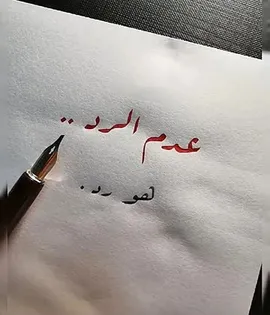 عدم الرد..
لهو رد.